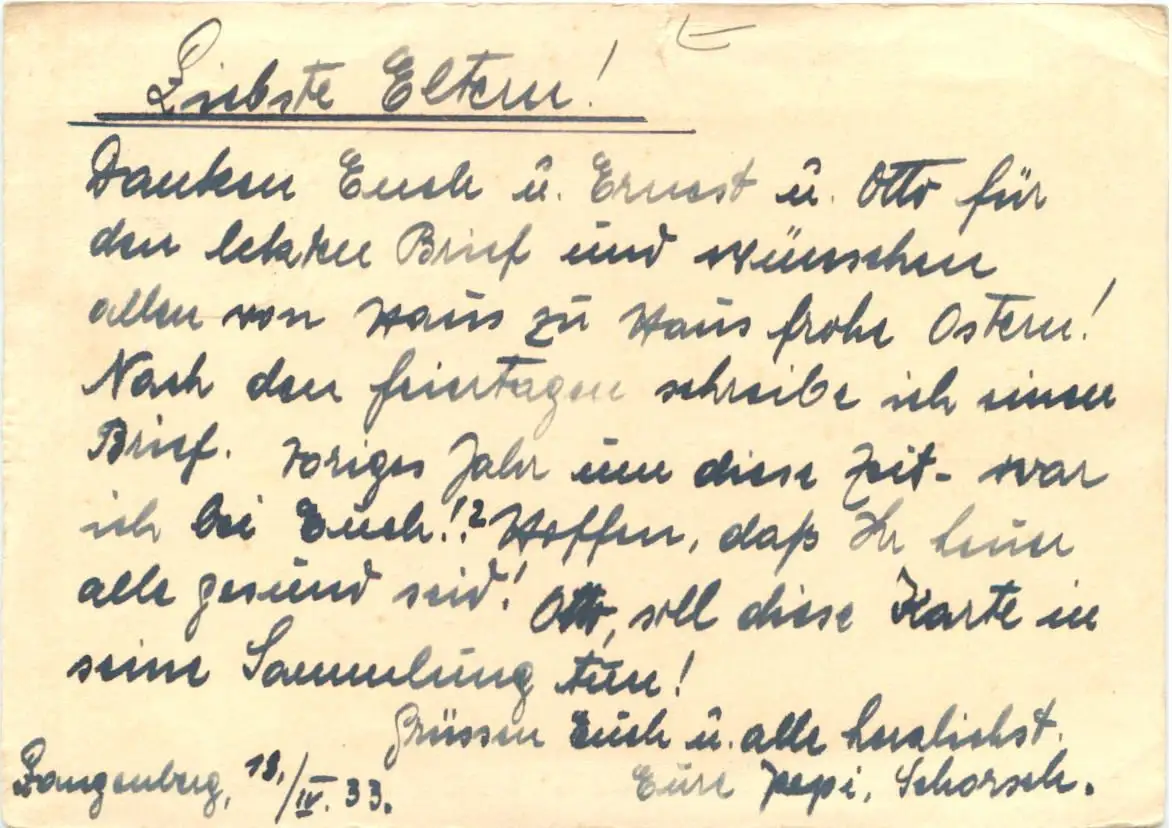 Liebste Eltern!
Danken Euch u. Ernest u. Otto für
den letzten Brief und wünschen
allen von Haus zu Haus frohe Ostern!
Nach den Feiertagen schreibe ich einen
Brief. Voriges Jahr um diese Zeit - war
ich bei Euch!? Hoffen, daß Ihr heuer
alle gesund seid! Otto, soll diese Karte in
seine Sammlung tun!
Grüssen Euch u. alle herzlichst.
Eure Pepi, Schorsch.
13./IV. 33.